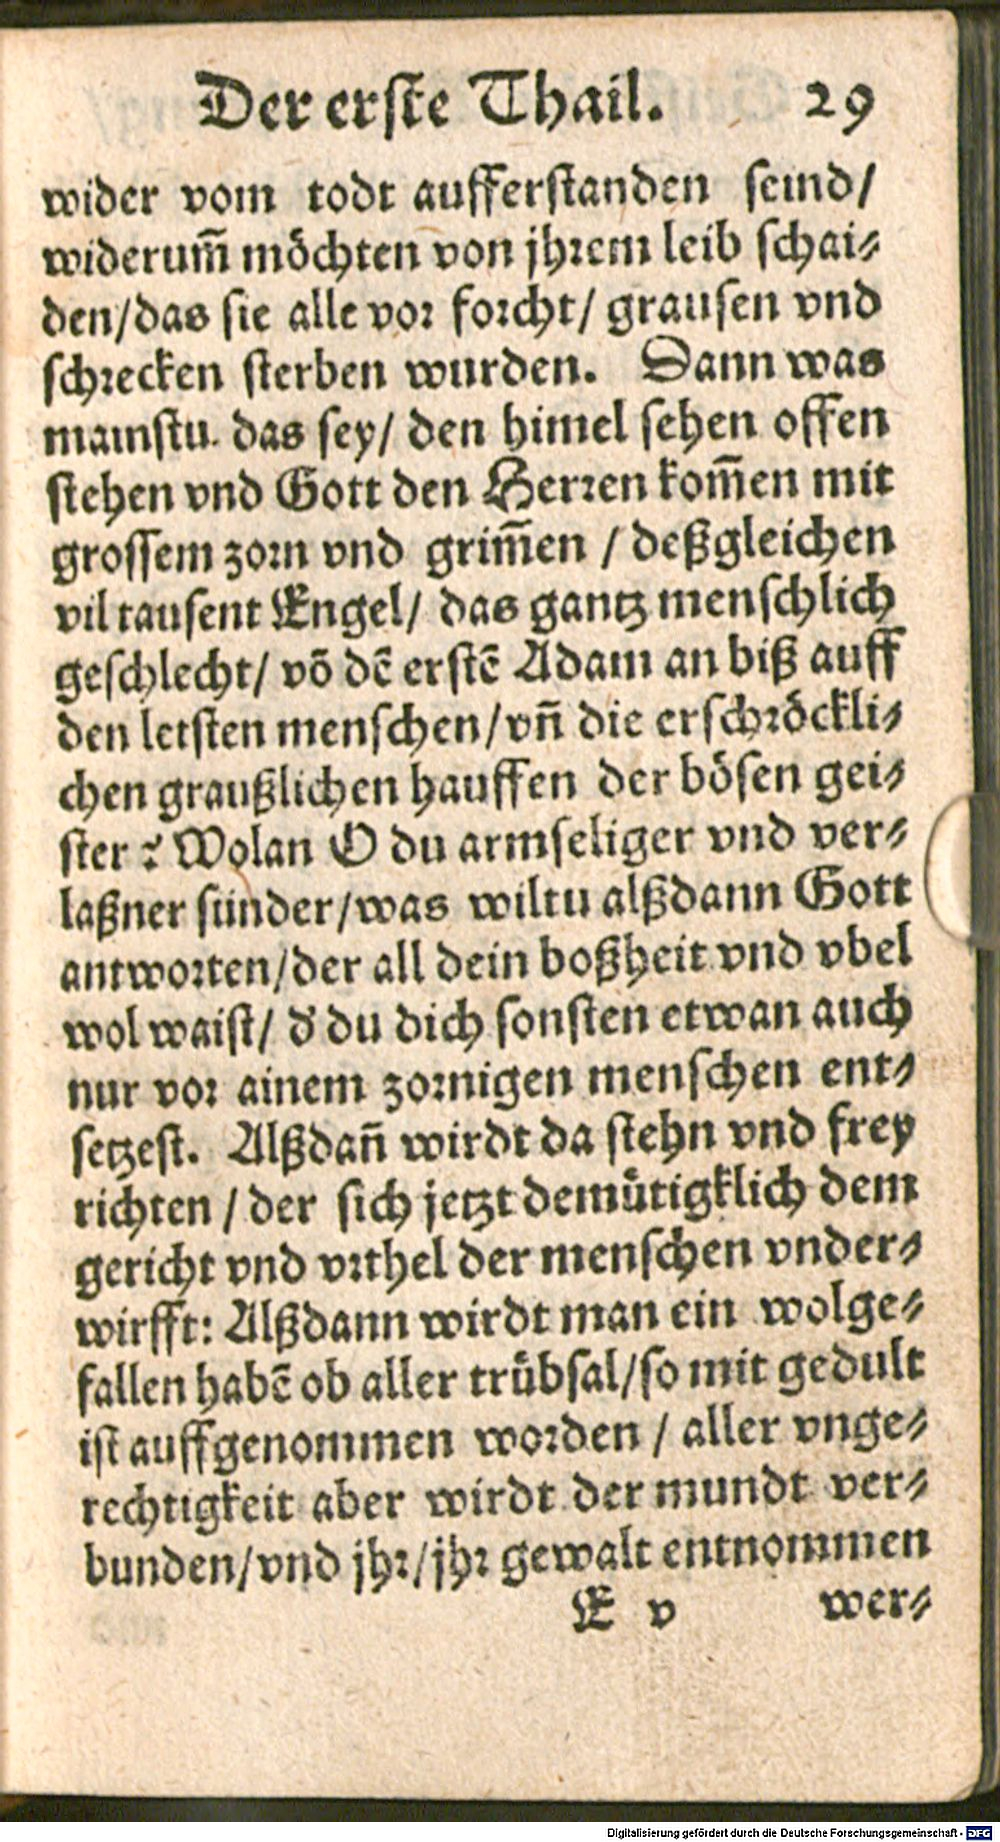 Der erste Thail. 29
wider vom todt aufferstanden seind/
widerum̄ möchten von jhrem leib schai⸗
den/das sie alle vor forcht/ grausen vnd
schrecken sterben wurden. Dann was
mainstu das sey/ den himel sehen offen
stehen vnd Gott den Herren kom̄en mit
grossem zorn vnd grim̄en / deßgleichen
vil tausent Engel/ das gantz menschlich
geschlecht/ võ dẽ erstẽ Adam an biß auff
den letsten menschen/vñ die erschröckli⸗
chen graußlichen hauffen der bösen gei⸗
ster? Wolan O du armseliger vnd ver⸗
laßner sünder/was wiltu alßdann Gott
antworten/der all dein boßheit vnd vbel
wol waist/ d' du dich sonsten etwan auch
nur vor ainem zornigen menschen ent⸗
setzest. Alßdañ wirdt da stehn vnd frey
richten / der sich jetzt demütigklich dem
gericht vnd vrthel der menschen vnder⸗
wirfft: Alßdann wirdt man ein wolge⸗
fallen habẽ ob aller trübsal/so mit gedult
ist auffgenommen worden / aller vnge⸗
rechtigkeit aber wirdt der mundt ver⸗
bunden/vnd jhr/jhr gewalt entnommen
E v wer⸗
Digitalisierung gefördert durch die Deutsche Forschungsgemeinschaft - DFG